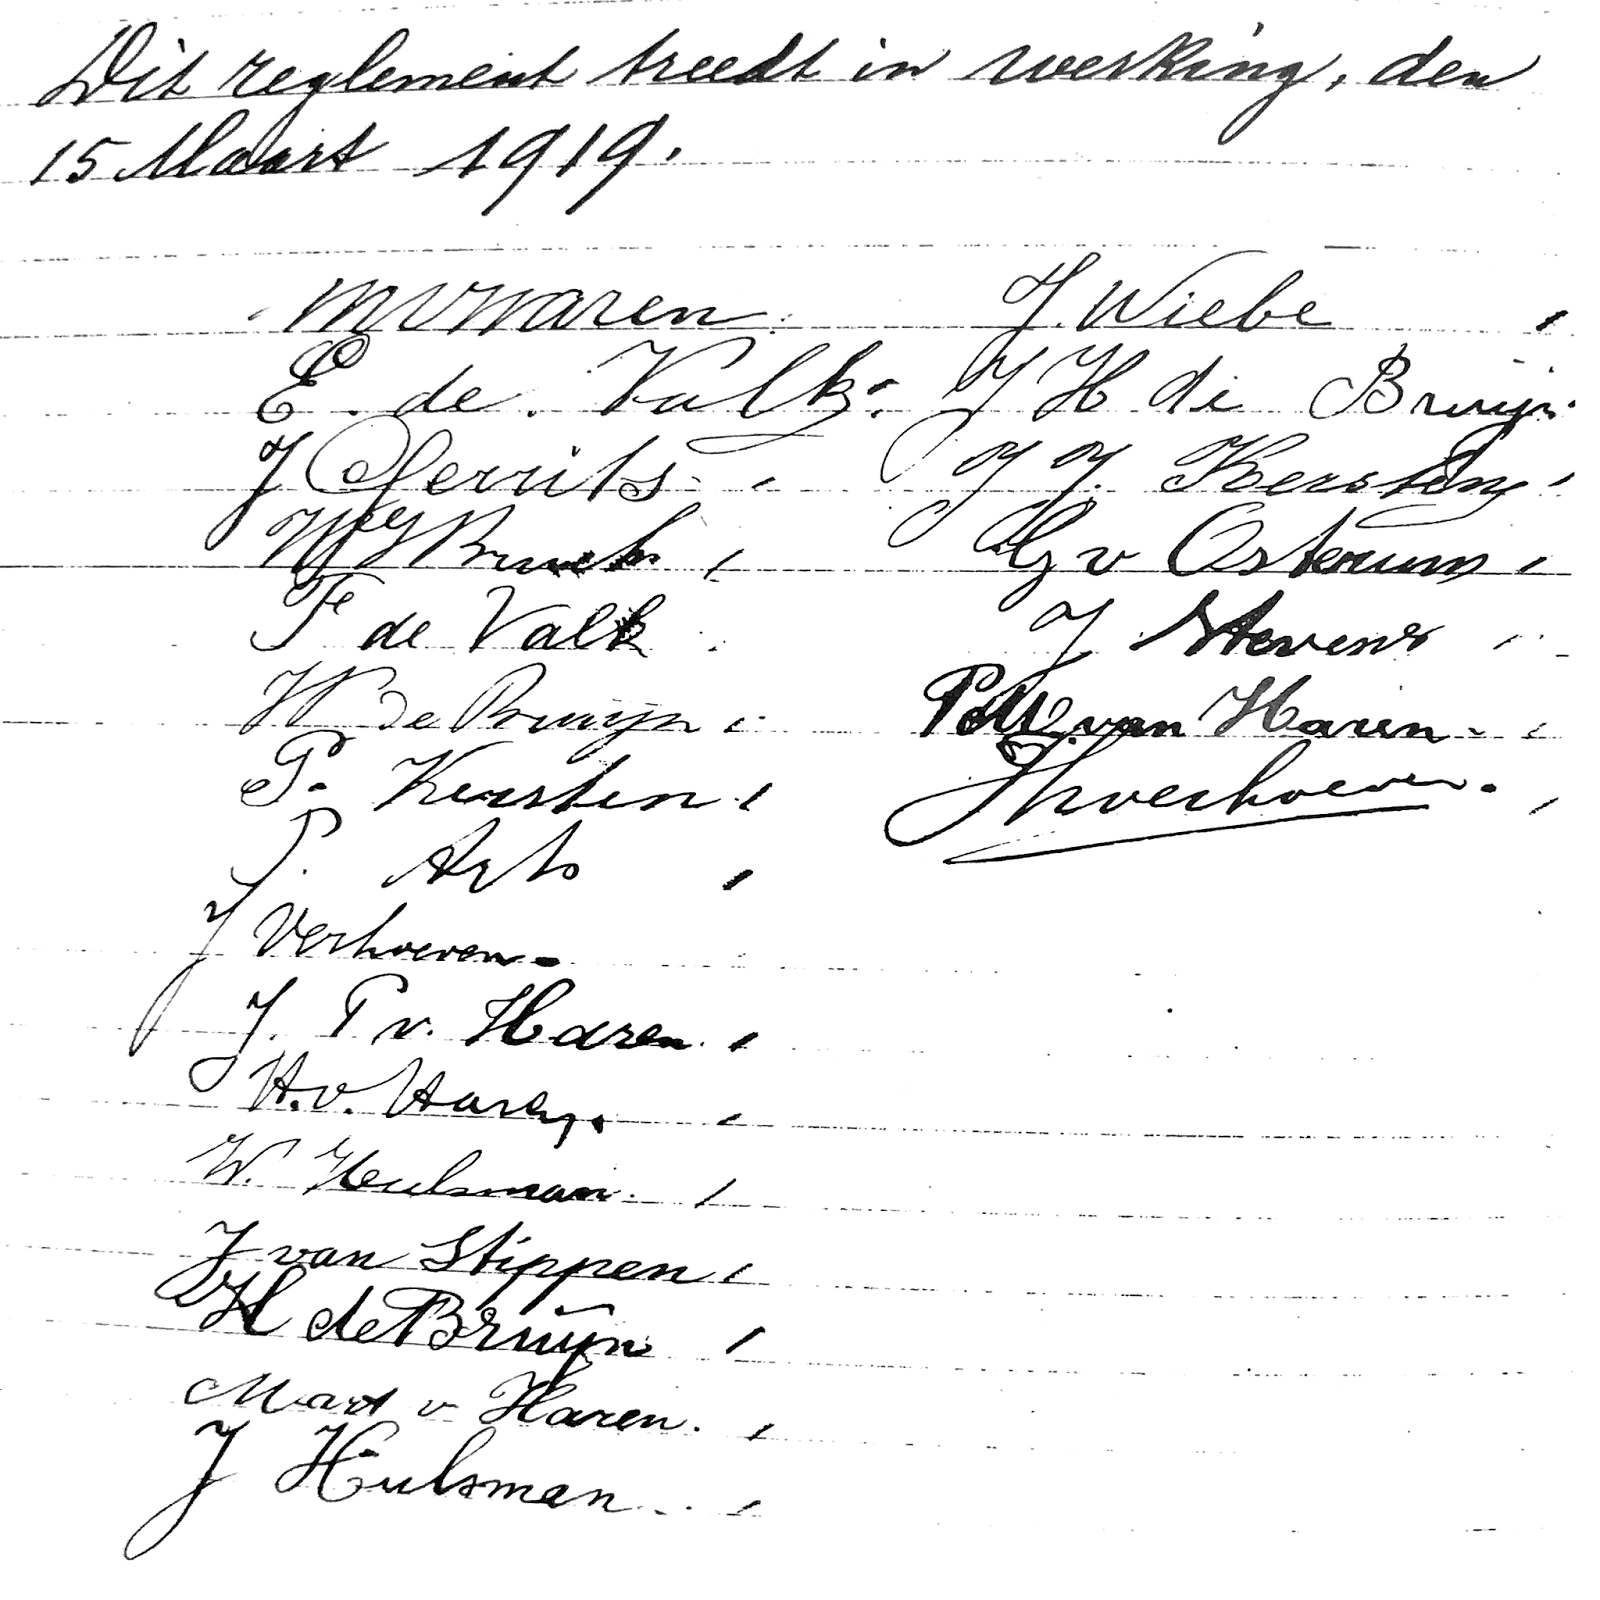 Dit reglement treedt in werking, den
15 Maart 1919.
M v Haren
E. de. Valk.
J Gerrits
F de Valk
W de Bruijn
P. Kersten
P. Arts
J Verhoeven
J. P v. Haren.
H. v. Haren.
W. Heulsman.
J van Stippen
H de Bruijn
Mart v Haren.
J Hulsman
J. Wiebe
J H de Bruijn.
J J. Kersten
G v Osteaum
J Stevens
van Haren
Verhoeven.